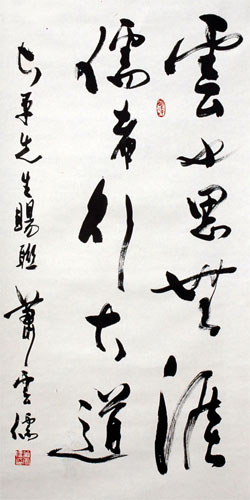 雲也思無涯
儒者行大道
先生賜聯
蕭雲儒